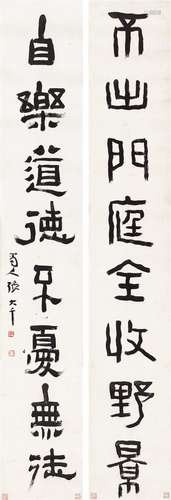 不出門庭全收野景
自樂道德不憂無徒
蜀人張大千